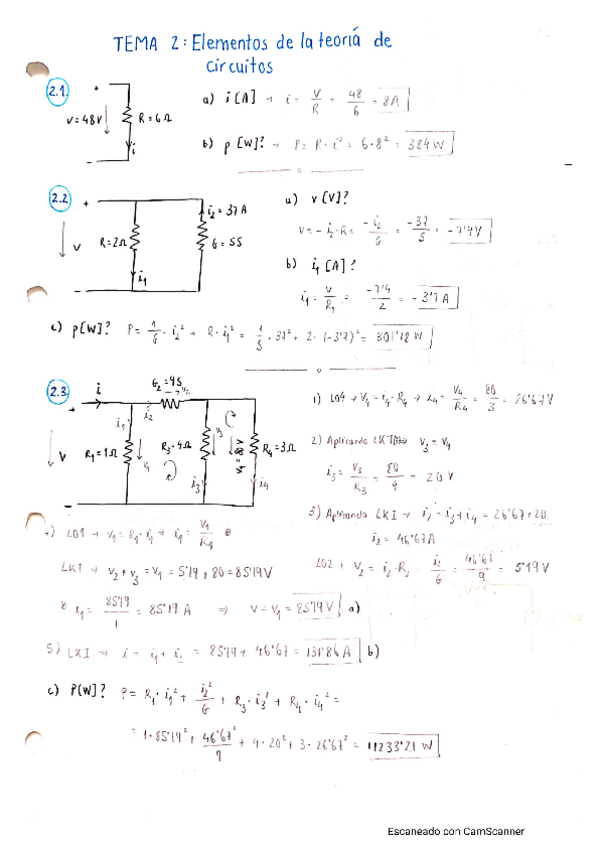 TEMA 2: Elementos de la teoriá de
circuitos
2.1.
+
V=48V
R=6Ω
i
-
a) i [A] → i = V/R = 48/6 = 8A
b) p [W]? → P = R · i² = 6·8² = 384 W
2.2
+
V
R=2Ω
i1
i2 = 37 A
G = 5S
-
a) v [V]?
V = - i2·R = -i2/G = -37/5 = -7'4V
b) i1 [A]?
i1 = V/R1 = -7'4/2 = -3'7A
c) p[W]? P = 1/G · i2² + R·i1² = 1/5 · 37² + 2 · (-3'7)² = 301'18 W
2.3.
+
i
G2=9S
V2
i1
i2
V
R1=1Ω
V1
R3=4Ω
V3
R4=3Ω
i3
i4
-
1) LO4 → V4 = i4 · R4 → i4 = V4/R4 = 80/3 = 26'67V
2) Aplicando LKT V3 = V4
i3 = V3/R3 = 80/4 = 20 V
3) Aplicando LKI → i2 = i3 + i4 = 26'67 + 20
i2 = 46'67A
LO2 → V2 = i2 · R2 = i2/G = 46'67/9 = 5'19 V
4) LO1 → V1 = R1 · i1 → i1 = V1/R1
LKT → V2 + V3 = V1 = 5'19 + 80 = 85'19V
i1 = 85'19/1 = 85'19 A ⇒ V = V1 = 85'19V a)
5) LKI → i = i1 + i2 = 85'19 + 46'67 = 131'86 A b)
c) P[W]? P = R1 · i1² + i2²/G + R3 · i3² + R4 · i4² =
= 1·85'19² + 46'67²/9 + 4·20² + 3·26'67² = 11233'21 W
Escaneado con CamScanner